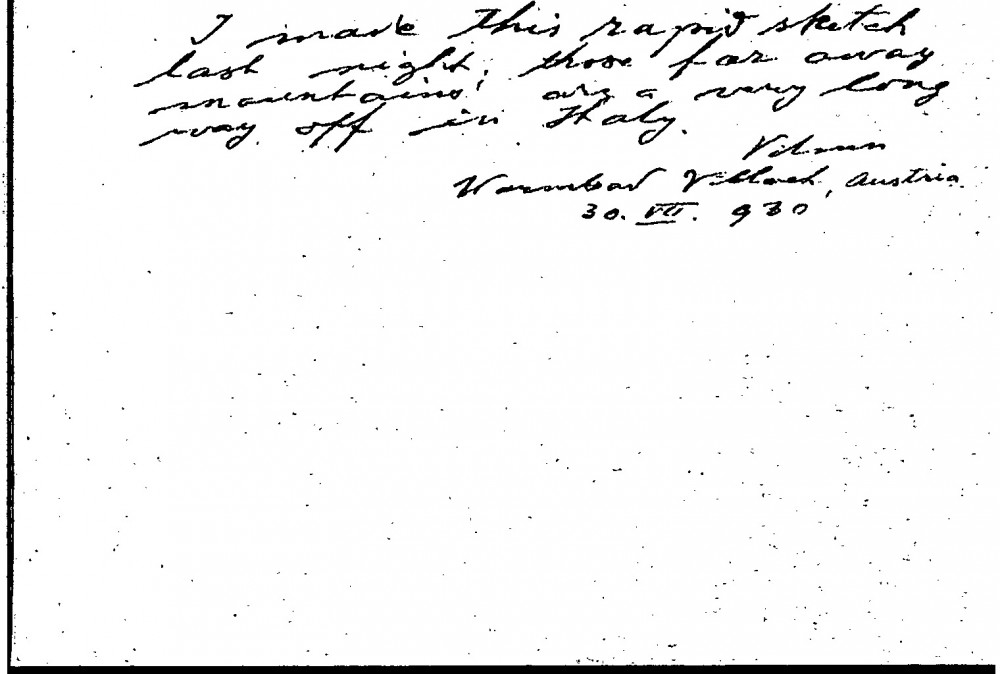 I made this rapid sketch
last night, those far away
mountains, are a very long
way off in Italy.
Warmbad Villach, Austria.
30. VII. 930